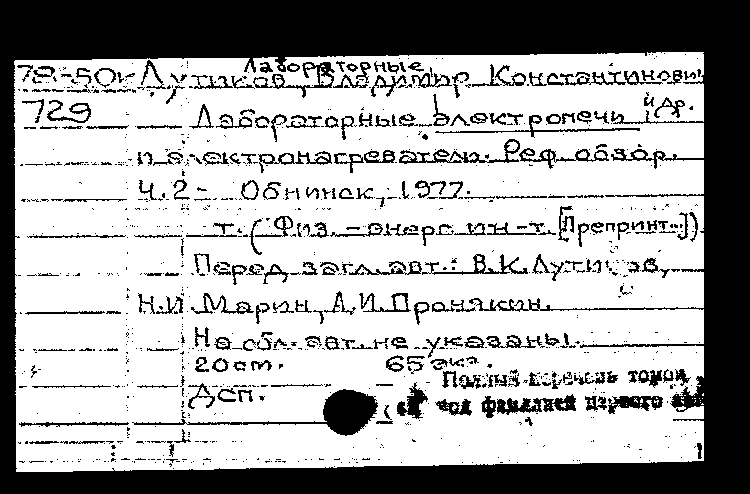 Лабораторные
78-50к Лутиков, Владимир Константинович
729 Лабораторные электропечи и др.
и электронагреватели. Реф. обзор.
Ч.2- Обнинск, 1977.
т. (Физ.-энерг. ин-т. [Препринт..])
Перед загл. авт.: В.К.Лутиков,
Н.И. Марин, А.И.Пронякин.
На обл. авт. не указаны.
20 см. 65 экз.
Дсп.
Полный перечень томов
см под фамилией первого